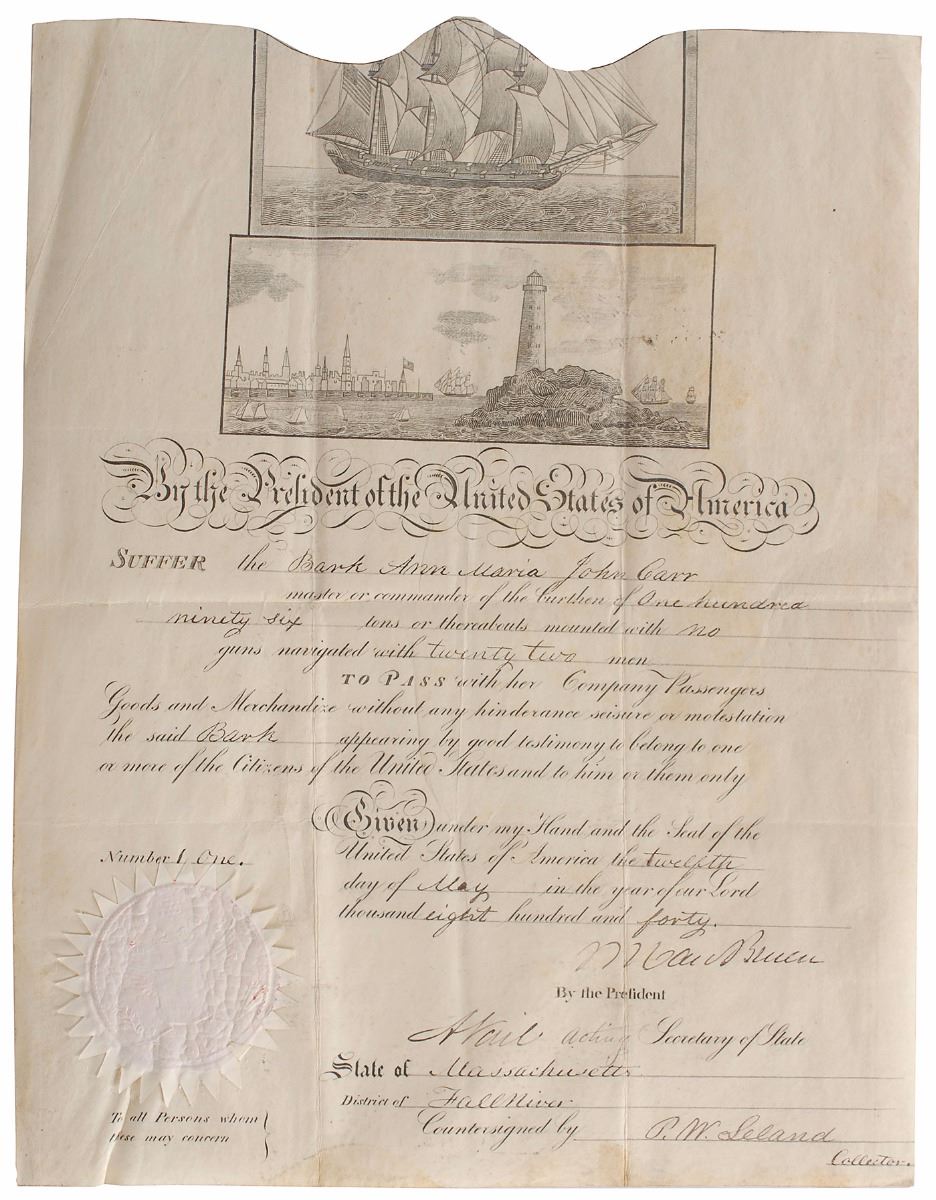 By the President of the United States of America
SUFFER the Bark Ann Maria John Carr
master or commander of the burthen of One hundred
ninety six tons or thereabouts mounted with no
guns navigated with twenty two men
TO PASS with her Company Passengers
Goods and Merchandize without any hinderance seisure or molestation
the said Bark appearing by good testimony to belong to one
or more of the Citizens of the United States and to him or them only
Given under my Hand and the Seal of the
United States of America the twelfth
day of May in the year of our Lord
thousand eight hundred and forty.
Number 1, One.
M Van Buren
By the President
A Vail acting Secretary of State
State of Massachusetts
District of Fall River
Countersigned by P. W. Leland
Collector.
To all Persons whom
these may concern